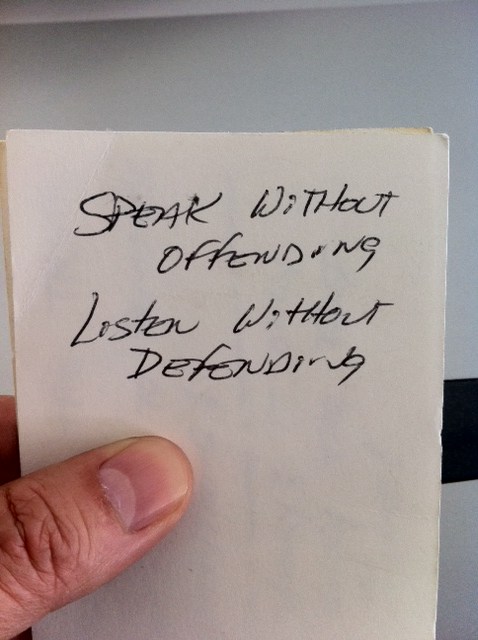 SPEAK WiTHOUT
OFFENDiNG
Listen Without
DEFENDiNG